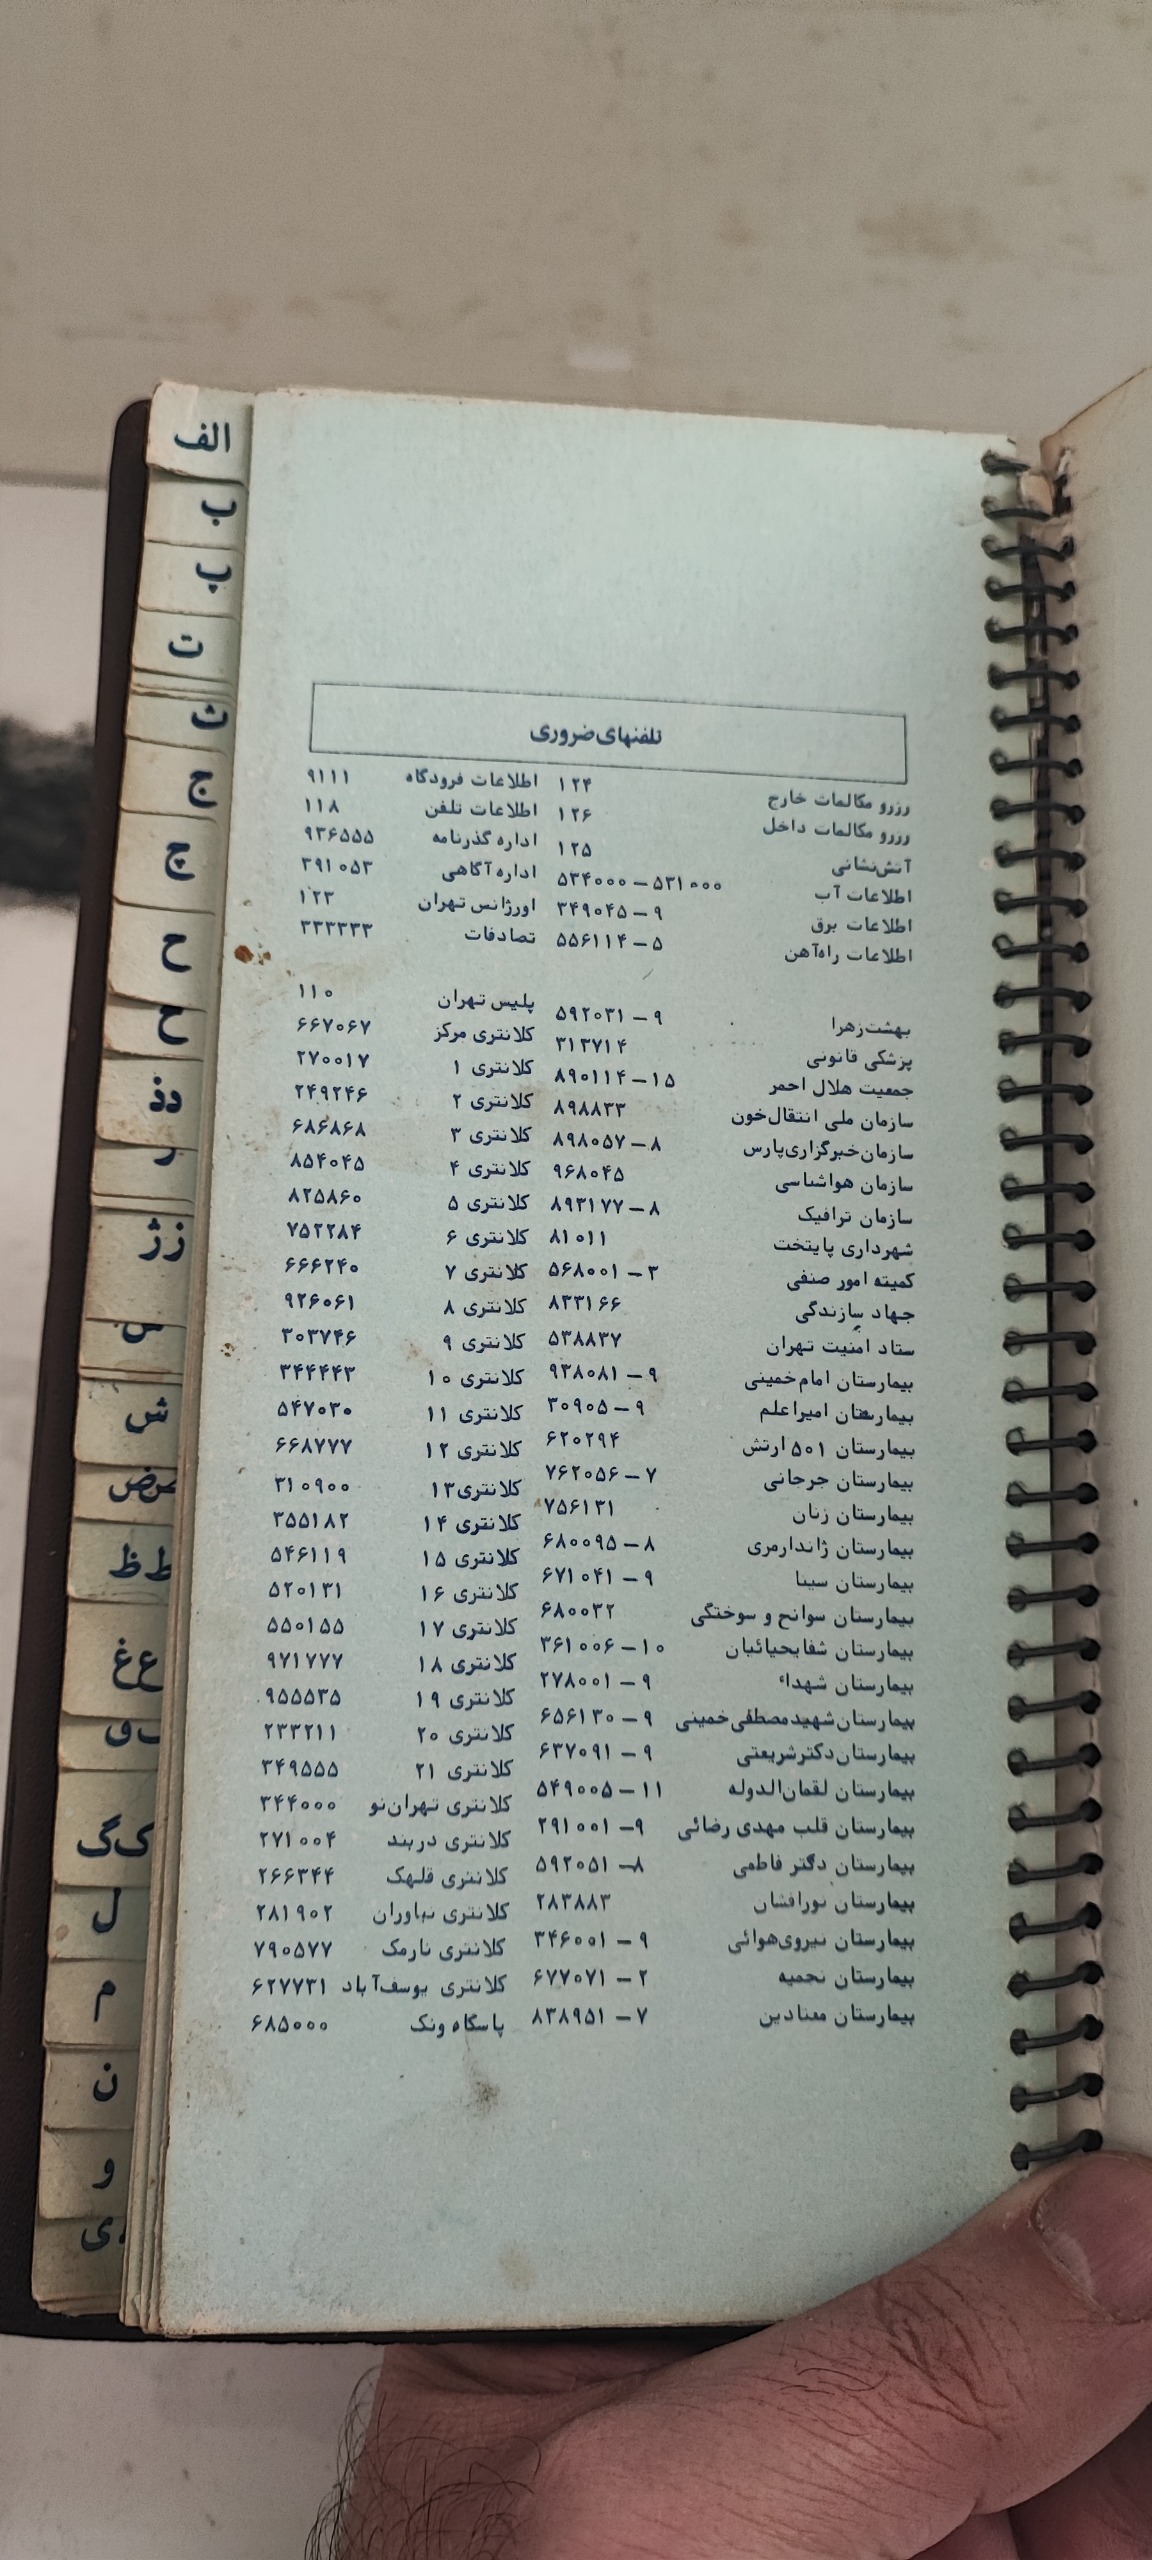 الف
ب
پ
ت
ث
ج
چ
ح
دذ
ر
زژ
س
ش
ط ظ
ع غ
ک گ
ل
م
ن
و
ی
تلفنهای ضروری
رزرو مکالمات خارج ۱۲۴
رزرو مکالمات داخل ۱۲۶
آتش‌نشانی ۱۲۵
اطلاعات آب ۵۳۱۰۰۰ – ۵۳۴۰۰۰
اطلاعات برق ۹ – ۳۴۹۰۴۵
اطلاعات راه‌آهن ۵ – ۵۵۶۱۱۴
بهشت‌زهرا ۹ – ۵۹۲۰۳۱
پزشکی قانونی ۳۱۳۷۱۴
جمعیت هلال احمر ۱۵ – ۸۹۰۱۱۴
سازمان ملی انتقال‌خون ۸۹۸۸۳۳
سازمان‌خبرگزاری‌پارس ۸ – ۸۹۸۰۵۷
سازمان هواشناسی ۹۶۸۰۴۵
سازمان ترافیک ۸ – ۸۹۳۱۷۷
شهرداری پایتخت ۸۱۰۱۱
کمیته امور صنفی ۳ – ۵۶۸۰۰۱
جهاد سازندگی ۸۳۳۱۶۶
ستاد امنیت تهران ۵۳۸۸۳۷
بیمارستان امام‌خمینی ۹ – ۹۳۸۰۸۱
بیمارستان امیراعلم ۹ – ۳۰۹۰۵
بیمارستان ۵۰۱ ارتش ۶۲۰۲۹۴
بیمارستان جرجانی ۷ – ۷۶۲۰۵۶
بیمارستان زنان ۷۵۶۱۳۱
بیمارستان ژاندارمری ۸ – ۶۸۰۰۹۵
بیمارستان سینا ۹ – ۶۷۱۰۴۱
بیمارستان سوانح و سوختگی ۶۸۰۰۳۲
بیمارستان شفایحیائیان ۱۰ – ۳۶۱۰۰۶
بیمارستان شهداء ۹ – ۲۷۸۰۰۱
بیمارستان‌شهیدمصطفی‌خمینی ۹ – ۶۵۶۱۳۰
بیمارستان‌دکترشریعتی ۹ – ۶۳۷۰۹۱
بیمارستان لقمان‌الدوله ۱۱ – ۵۴۹۰۰۵
بیمارستان قلب مهدی رضائی ۹ – ۲۹۱۰۰۱
بیمارستان دکتر فاطمی ۸ – ۵۹۲۰۵۱
بیمارستان نورافشان ۲۸۳۸۸۳
بیمارستان نیروی‌هوائی ۹ – ۳۴۶۰۰۱
بیمارستان نجمیه ۲ – ۶۷۷۰۷۱
بیمارستان معتادین ۷ – ۸۳۸۹۵۱
اطلاعات فرودگاه ۹۱۱۱
اطلاعات تلفن ۱۱۸
اداره گذرنامه ۹۳۶۵۵۵
اداره آگاهی ۳۹۱۰۵۳
اورژانس تهران ۱۲۳
تصادفات ۳۳۳۳۳۳
پلیس تهران ۱۱۰
کلانتری مرکز ۶۶۷۰۶۷
کلانتری ۱ ۲۷۰۰۱۷
کلانتری ۲ ۲۴۹۲۴۶
کلانتری ۳ ۶۸۶۸۶۸
کلانتری ۴ ۸۵۴۰۴۵
کلانتری ۵ ۸۲۵۸۶۰
کلانتری ۶ ۷۵۲۲۸۴
کلانتری ۷ ۶۶۶۲۴۰
کلانتری ۸ ۹۲۶۰۶۱
کلانتری ۹ ۳۰۳۷۴۶
کلانتری ۱۰ ۳۴۴۴۴۳
کلانتری ۱۱ ۵۴۷۰۳۰
کلانتری ۱۲ ۶۶۸۷۷۷
کلانتری۱۳ ۳۱۰۹۰۰
کلانتری ۱۴ ۳۵۵۱۸۲
کلانتری ۱۵ ۵۴۶۱۱۹
کلانتری ۱۶ ۵۲۰۱۳۱
کلانتری ۱۷ ۵۵۰۱۵۵
کلانتری ۱۸ ۹۷۱۷۷۷
کلانتری ۱۹ ۹۵۵۵۳۵
کلانتری ۲۰ ۲۳۳۲۱۱
کلانتری ۲۱ ۳۴۹۵۵۵
کلانتری تهران‌نو ۳۴۴۰۰۰
کلانتری دربند ۲۷۱۰۰۴
کلانتری قلهک ۲۶۶۳۴۴
کلانتری نیاوران ۲۸۱۹۰۲
کلانتری نارمک ۷۹۰۵۷۷
کلانتری یوسف‌آباد ۶۲۷۷۳۱
پاسگاه ونک ۶۸۵۰۰۰